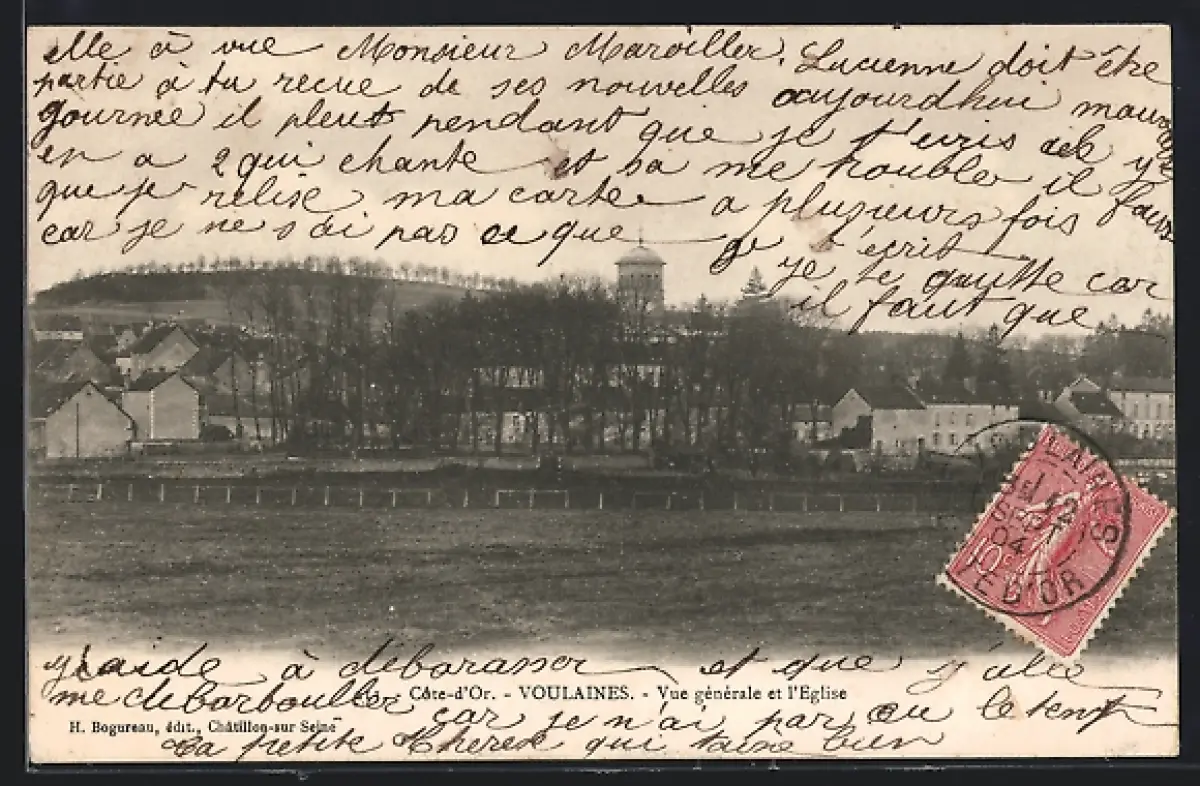 elle à vue Monsieur Maroiller. Lucienne doit être
partie à tu recue de ses nouvelles aujourdhui mauvaise
journee il pleut pendant que je t'ecris il y
en a 2 qui chante et sa me trouble il faut
que je relise ma carte a plusieurs fois
car je ne sai pas ce que je t'écrit
je te quitte car
il faut que
j'aide à débarasser et que j'alle
me débarbouller car je n'ai pas eu le temp
ta petite Therese qui taime bien
Côte-d'Or. - VOULAINES. - Vue générale et l'Eglise
H. Bogureau, édit., Châtillon-sur Seine
12
SEPT
04
10c
E D'OR